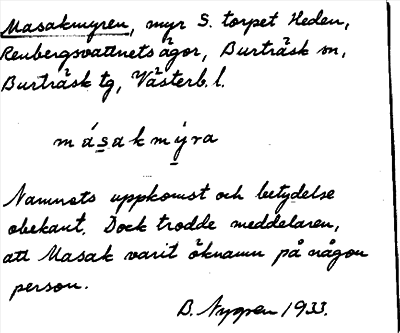 Masakmyren, myr S. torpet Heden,
Renbergsvattnets ägor, Burträsk sn,
Burträsk tg, Västerb. l.
másakmýra
Namnets uppkomst och betydelse
obekant. Dock trodde meddelaren,
att Masak varit öknamn på någon
person.
B. Nygren 1933.